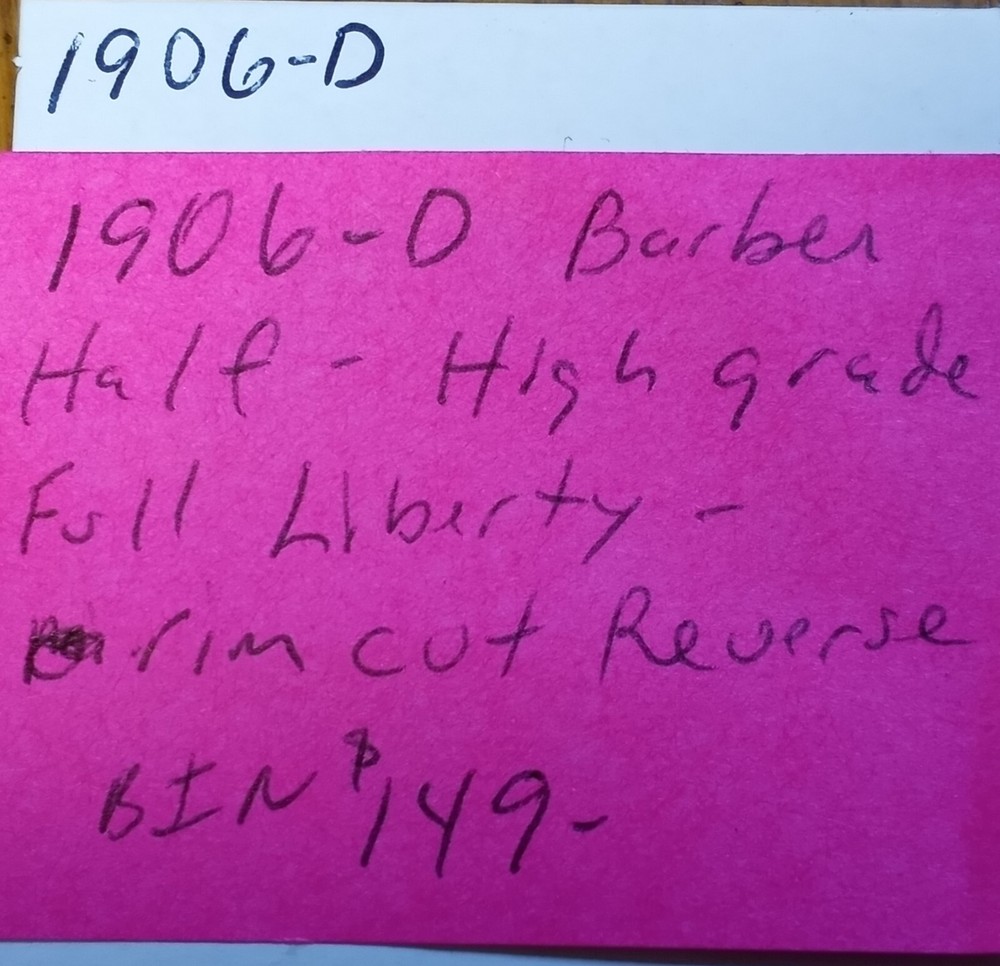 1906-D
1906-D Barber
Half - High grade
Full Liberty -
rim cut Reverse
BIN $149-